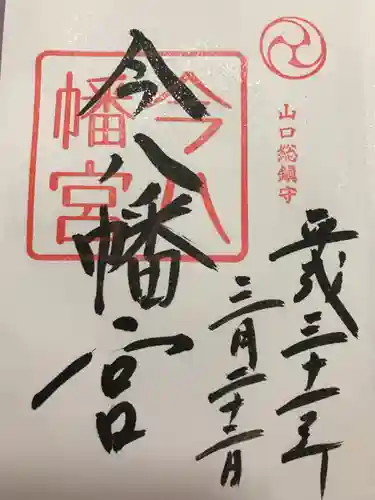 山口総鎮守
今八幡宮
今八幡宮
平成三十一年
三月二十二日